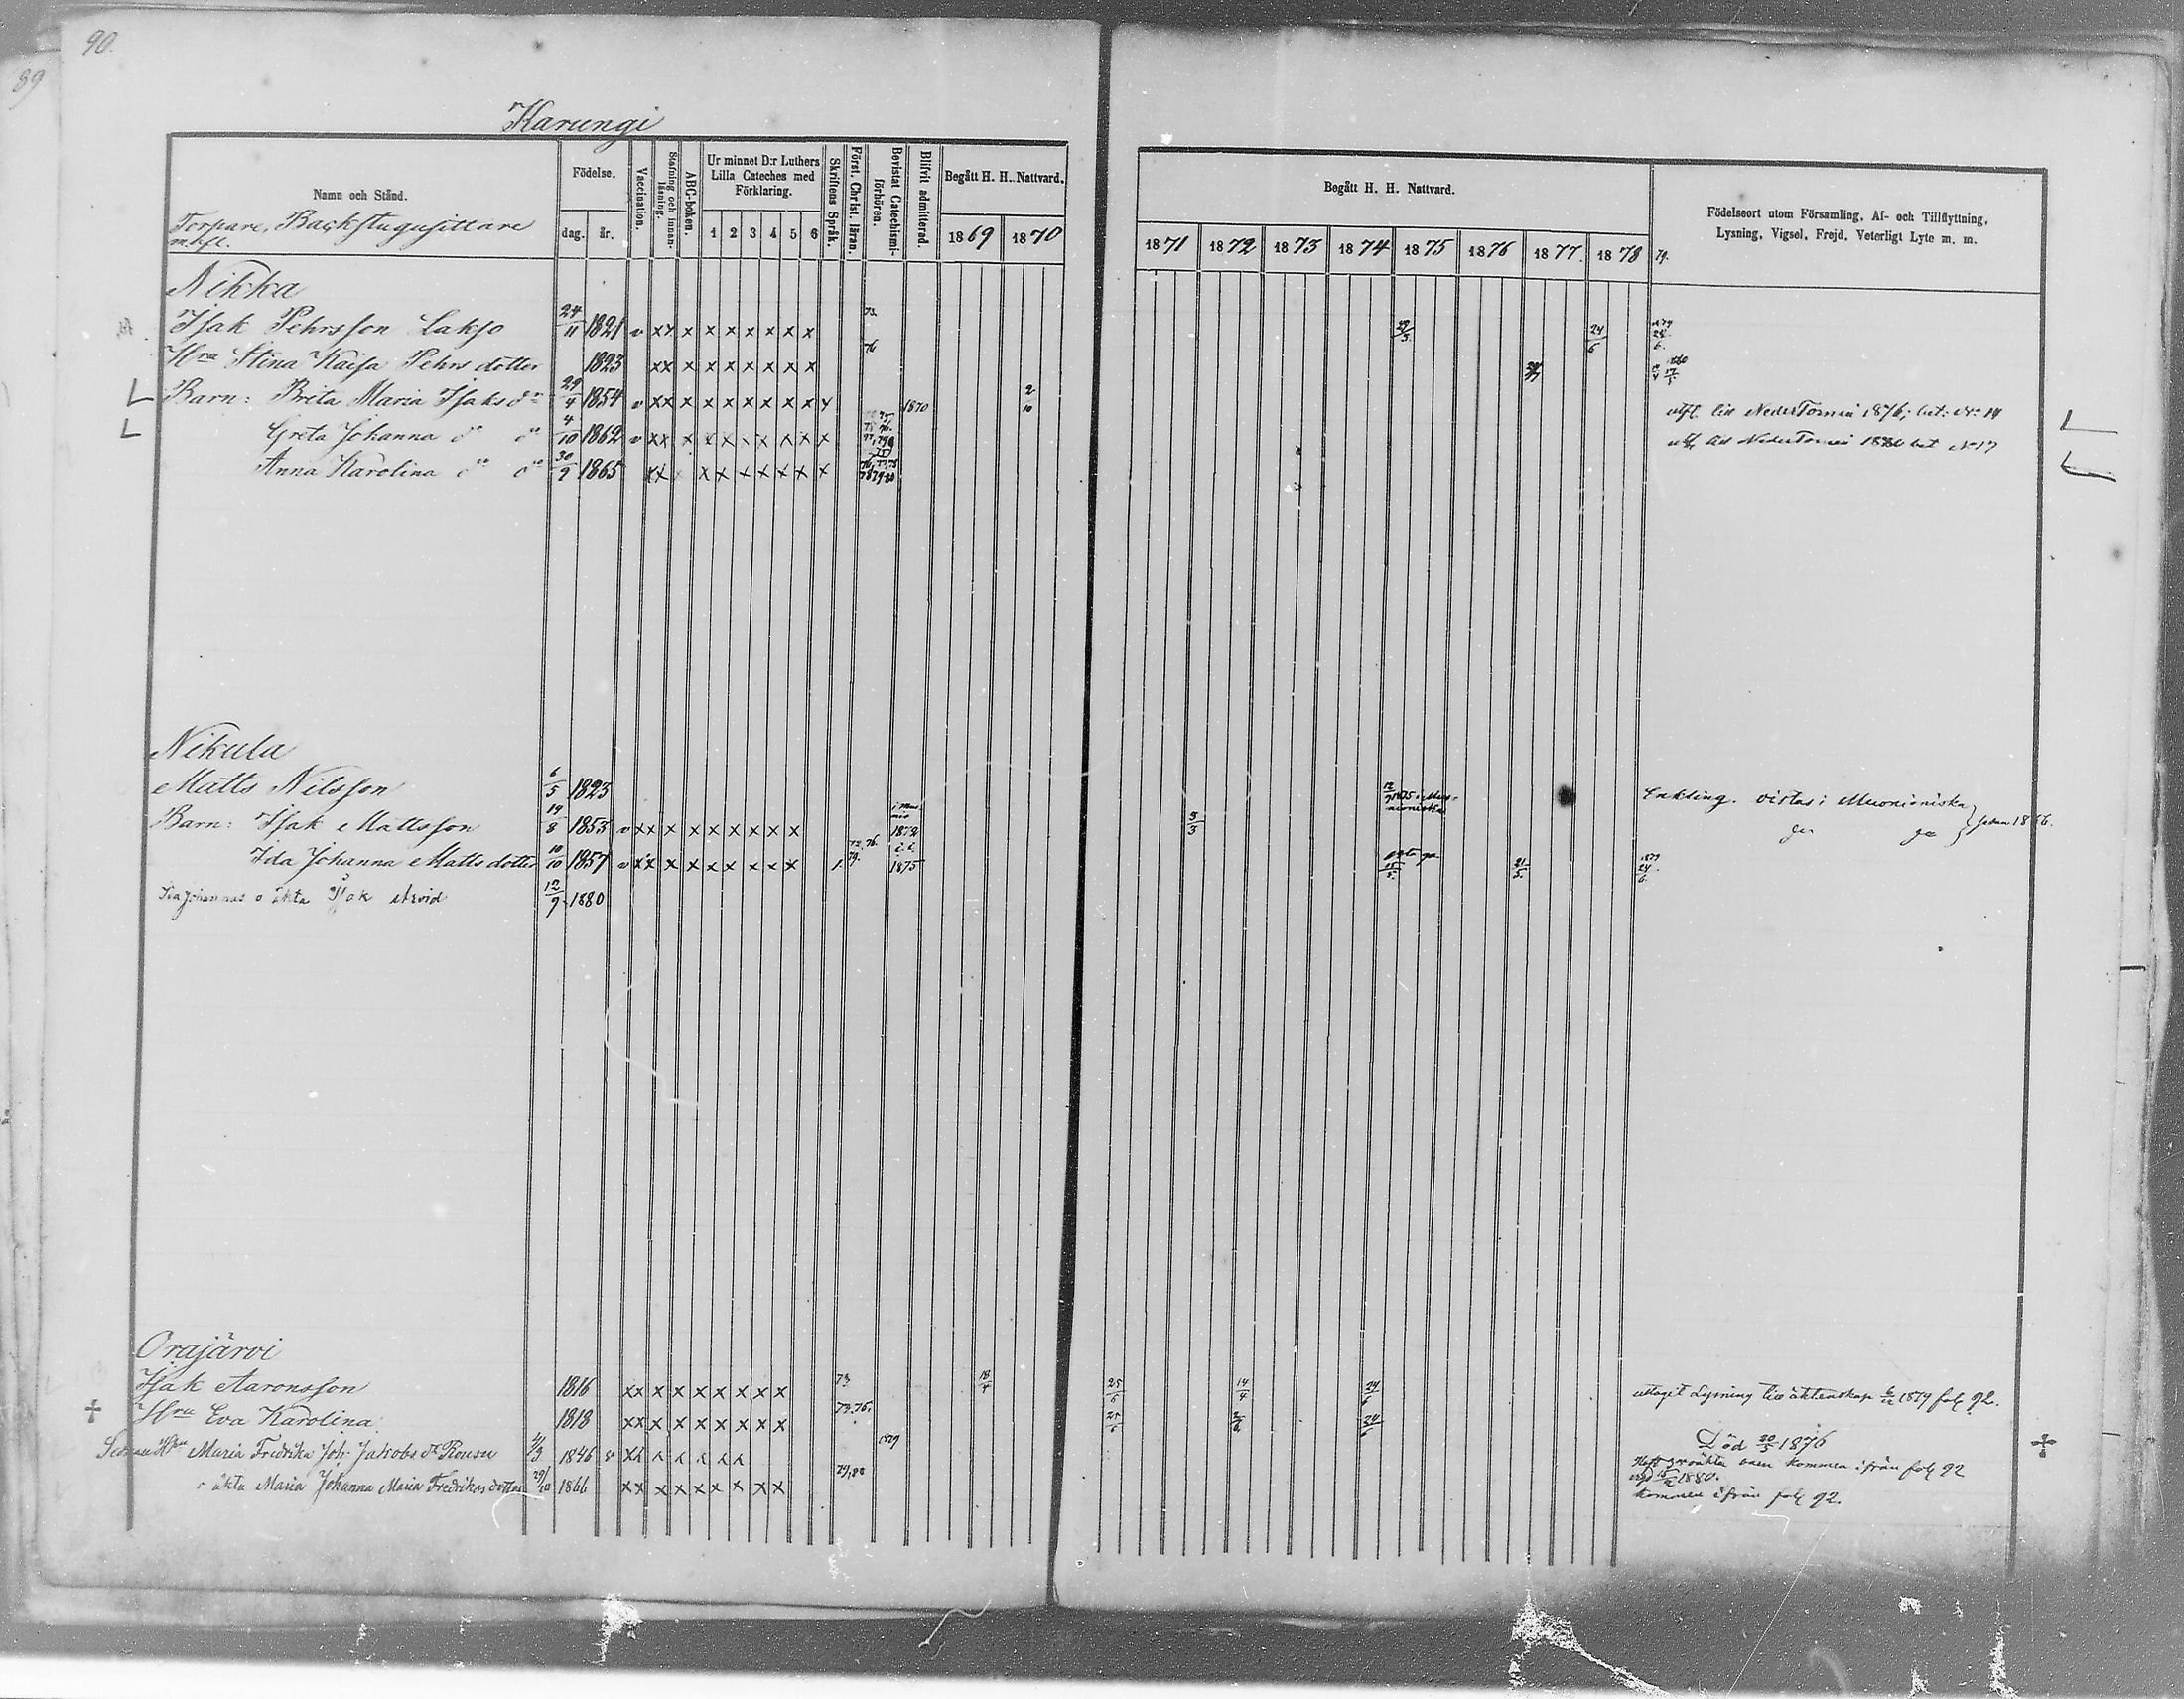 90.
89
Karungi
Namn och Stånd.
Torpare, Backstugusittare
m. fl.
Födelse.
dag. år.
Vaccination.
Stafning och innanläsning.
ABC-boken.
Ur minnet D:r Luthers Lilla Cateches med Förklaring.
1 2 3 4 5 6
Skriftens Språk.
Först. Christ. läran.
Bevistat Catechismi-förhören.
Blifvit admitterad.
Begått H. H. Nattvard.
1869 1870
Begått H. H. Nattvard.
1871 1872 1873 1874 1875 1876 1877 1878 79.
Födelseort utom Församling, Af- och Tillflyttning,
Lysning, Vigsel, Frejd, Veterligt Lyte m. m.
Nikka
Isak Pehrsson Lakso 24/11 1821 v xx x x x x x x x 73. 24/6
Hru Stina Kaisa Pehrs dotter 1823 xx x x x x x x x 76
Barn: Brita Maria Isaks dr 29/4 1854 v xx x x x x x x x 1870 2/10 utfl. till NederTorneå 1876; bet: No: 14
Greta Johanna do do 4/10 1862 v xx x x x x x x x x NederTorneå 1880 bet No 17
Anna Karolina do do 30/9 1865 xx x x x x x x x
Nikula
Matts Nilsson 6/5 1823 Enkling. vistas i Muonioniska
Barn: Isak Mattsson 19/8 1853 v xx x x x x x x x 1872 3/3 sedan 1866.
Ida Johanna Matts dotter 10/10 1857 v xx x x x x x x x 1. 79. 1875 21/5 1879 24/6
Ida Johannas o äkta Isak Arvid 12/9 1880
Orajärvi
Isak Aaronsson 1816 xx x x x x x x x 73 18/4 25/6 14/4 24/6 uttagit Lysning till äktenskap 1879 fol 92.
Hru Eva Karolina 1818 xx x x x x x x x 73.76. 25/6 2/6 24/6 Död 20/5 1876
Sednare Hru Maria Fredrika Joh. Jakobs dr Rousu 4/3 1846 v xx x x x x x 1879 barn kommen ifrån fol 92
1880.
o äkta Maria Johanna Maria Fredrikas dotter 29/10 1866 xx x x x x x x x 79,80 kommen ifrån fol 92.